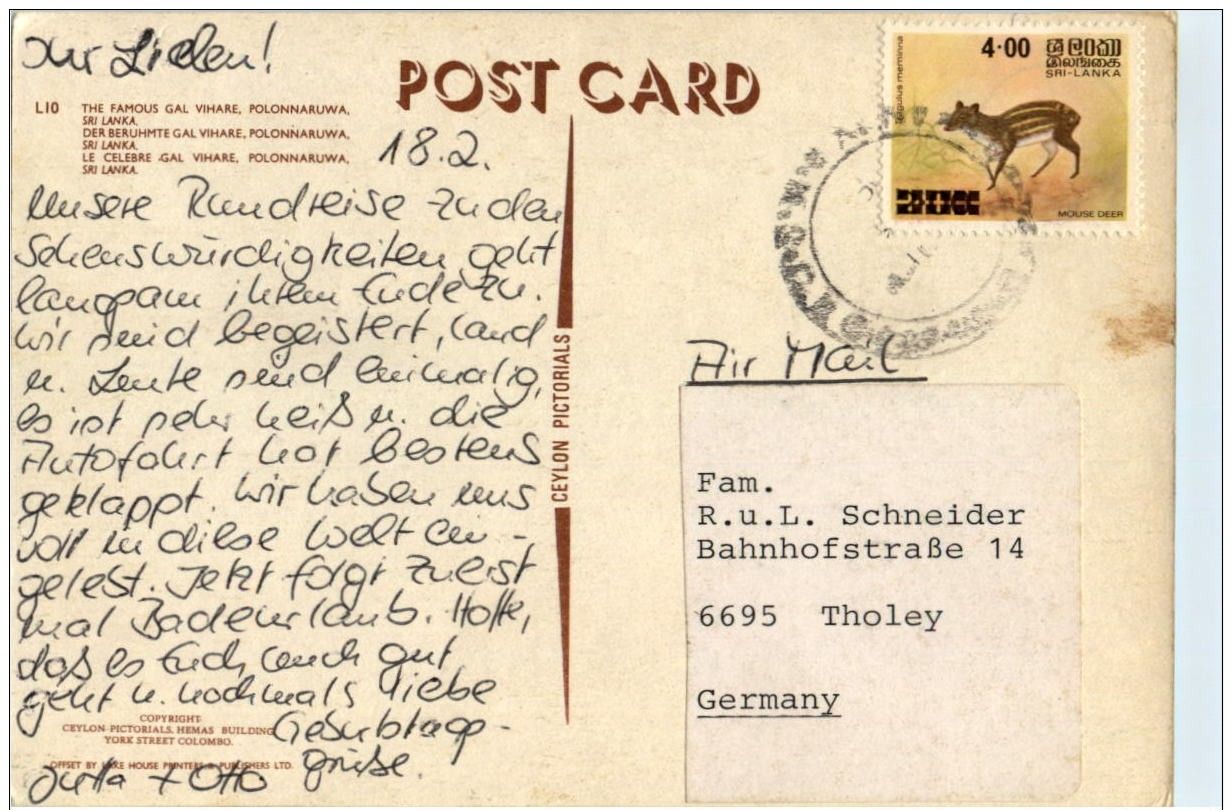 Ihr Lieben!
POST CARD
L10 THE FAMOUS GAL VIHARE, POLONNARUWA,
SRI LANKA.
DER BERUHMTE GAL VIHARE, POLONNARUWA,
SRI LANKA.
LE CELEBRE GAL VIHARE, POLONNARUWA,
SRI LANKA.
18.2.
Unsere Rundreise zu den
Sehenswürdigkeiten geht
langsam ihrem Ende zu.
Wir sind begeistert, Land
u. Leute sind einmalig,
es ist sehr heiß u. die
Autofahrt hat bestens
geklappt. Wir haben uns
voll in diese Welt ein-
gelebt. Jetzt folgt zuerst
mal Badeurlaub. Hoffe,
daß es Euch auch gut
geht u. nochmals liebe
Geburtstags-
grüße.
Jutta + Otto
COPYRIGHT
CEYLON PICTORIALS, HEMAS BUILDING
YORK STREET COLOMBO.
OFFSET BY LAKE HOUSE PRINTERS & PUBLISHERS LTD.
CEYLON PICTORIALS
Tragulus meminna
4·00
ශ්‍රී ලංකා
இலங்கை
SRI-LANKA
MOUSE DEER
Air Mail
Fam.
R.u.L. Schneider
Bahnhofstraße 14
6695 Tholey
Germany